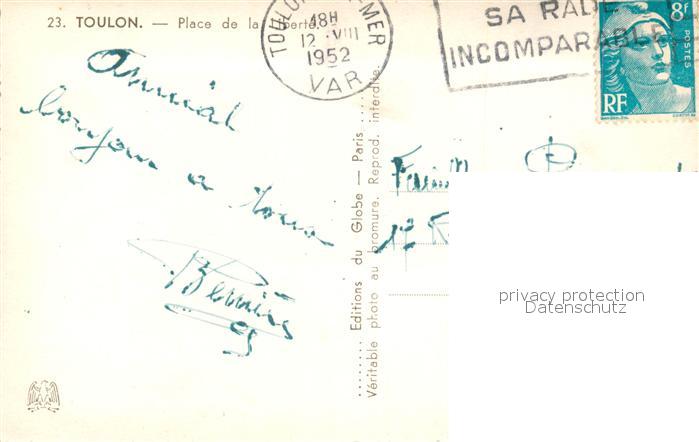 23. TOULON. — Place de la Liberté
TOULON MER
18H
12 · VIII
1952
VAR
SA RADE
INCOMPARABLE
8f
POSTES
RF
Amical
bonjour a tous
Editions du Globe — Paris
Véritable photo au bromure. Reprod. interdite.
privacy protection
Datenschutz